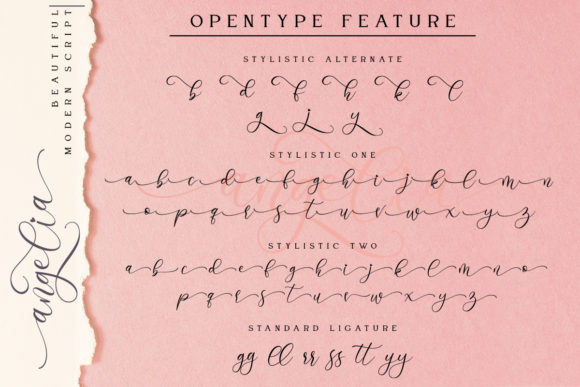 BEAUTIFUL
MODERN SCRIPT
angelia
OPENTYPE FEATURE
STYLISTIC ALTERNATE
b d f h k l
g j y
STYLISTIC ONE
a b c d e f g h i j k l m n
o p q r s t u v w x y z
STYLISTIC TWO
a b c d e f g h i j k l m n o
p q r s t u v w x y z
STANDARD LIGATURE
gg ll rr ss tt yy
angelia